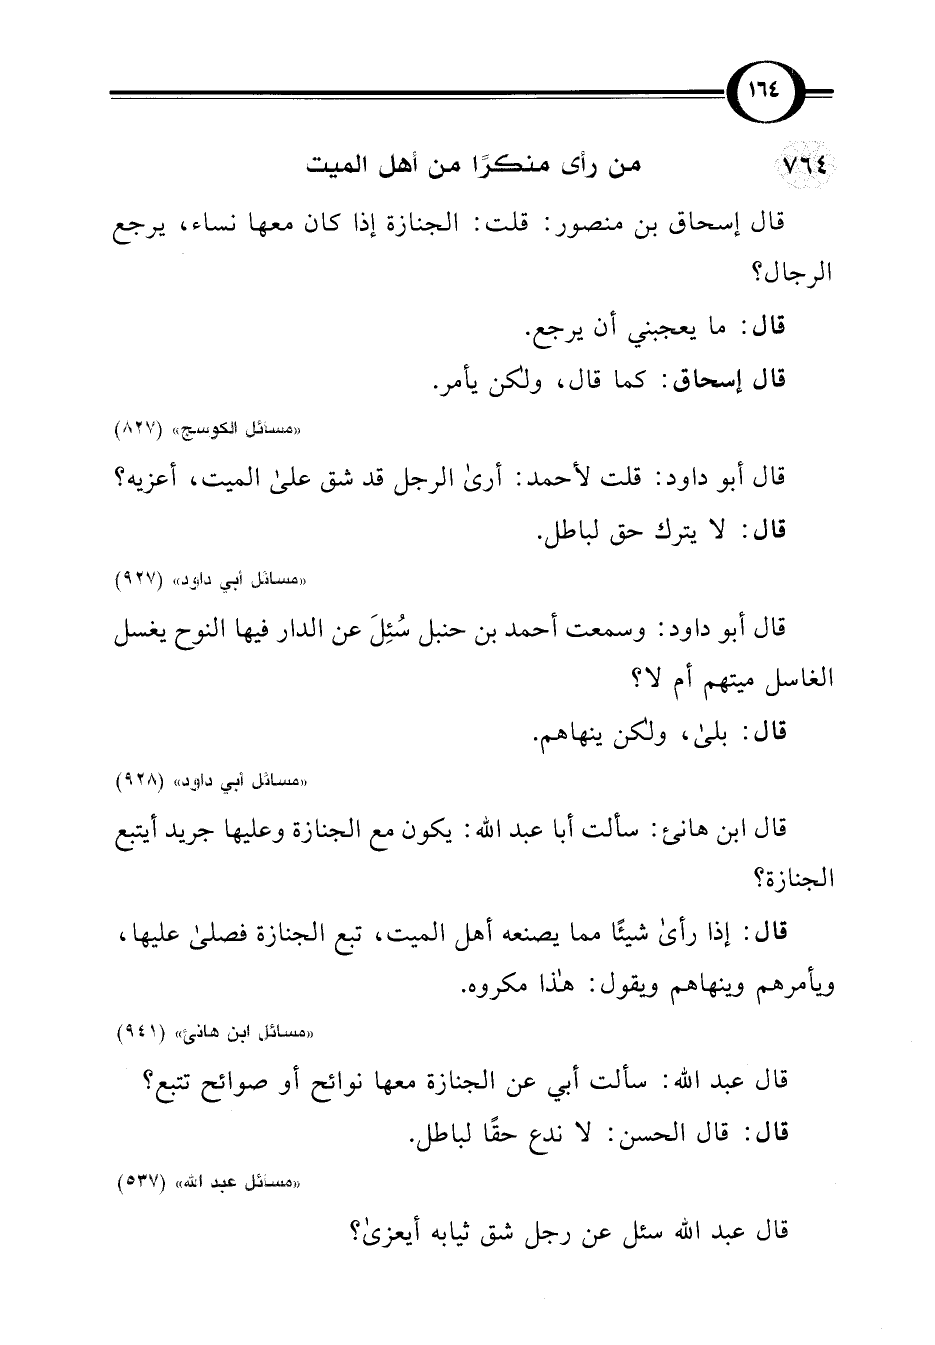 ١٦٤
٧٦٤ من رأى منكرًا من أهل الميت
قال إسحاق بن منصور: قلت: الجنازة إذا كان معها نساء، يرجع
الرجال؟
قال: ما يعجبني أن يرجع.
قال إسحاق: كما قال، ولكن يأمر.
«مسائل الكوسج» (٨٢٧)
قال أبو داود: قلت لأحمد: أرىٰ الرجل قد شق علىٰ الميت، أعزيه؟
قال: لا يترك حق لباطل.
«مسائل أبي داود» (٩٢٧)
قال أبو داود: وسمعت أحمد بن حنبل سُئِلَ عن الدار فيها النوح يغسل
الغاسل ميتهم أم لا؟
قال: بلىٰ، ولكن ينهاهم.
«مسائل أبي داود» (٩٢٨)
قال ابن هانئ: سألت أبا عبد الله: يكون مع الجنازة وعليها جريد أيتبع
الجنازة؟
قال: إذا رأىٰ شيئًا مما يصنعه أهل الميت، تبع الجنازة فصلىٰ عليها،
ويأمرهم وينهاهم ويقول: هٰذا مكروه.
«مسائل ابن هانئ» (٩٤١)
قال عبد الله: سألت أبي عن الجنازة معها نوائح أو صوائح تتبع؟
قال: قال الحسن: لا ندع حقًا لباطل.
«مسائل عبد الله» (٥٣٧)
قال عبد الله سئل عن رجل شق ثيابه أيعزىٰ؟